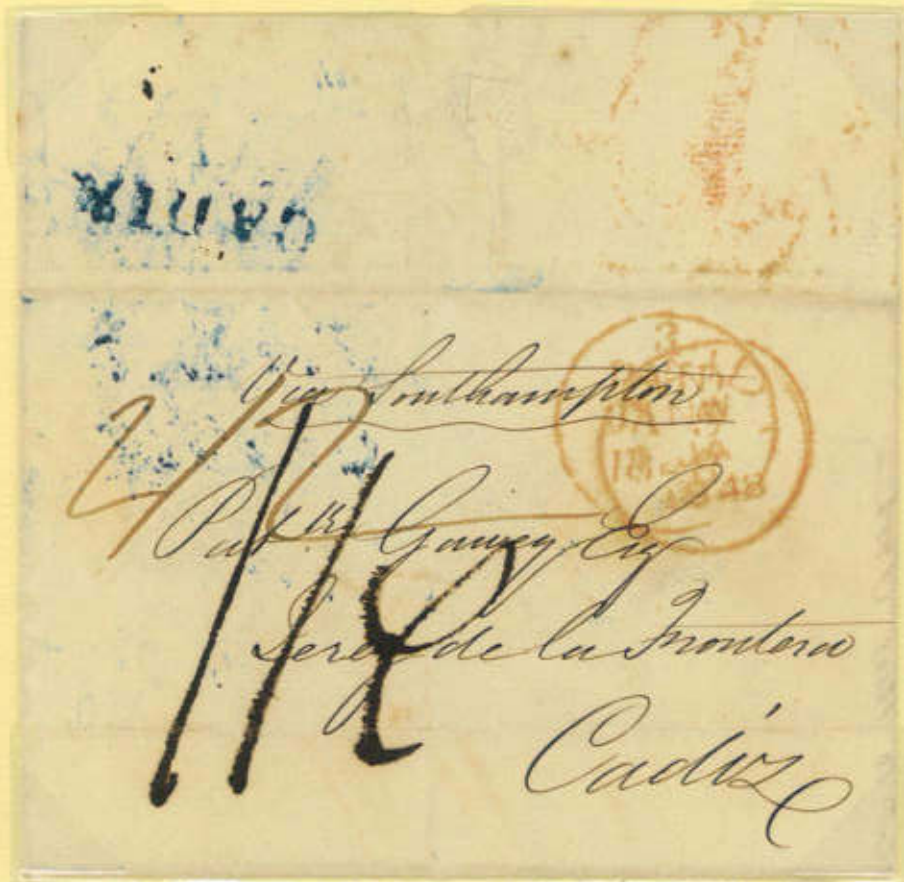 CADIZ
3
1848
Via Southampton
2/2
Patk. Garvey Esq
Xerez de la Frontera
Cadiz